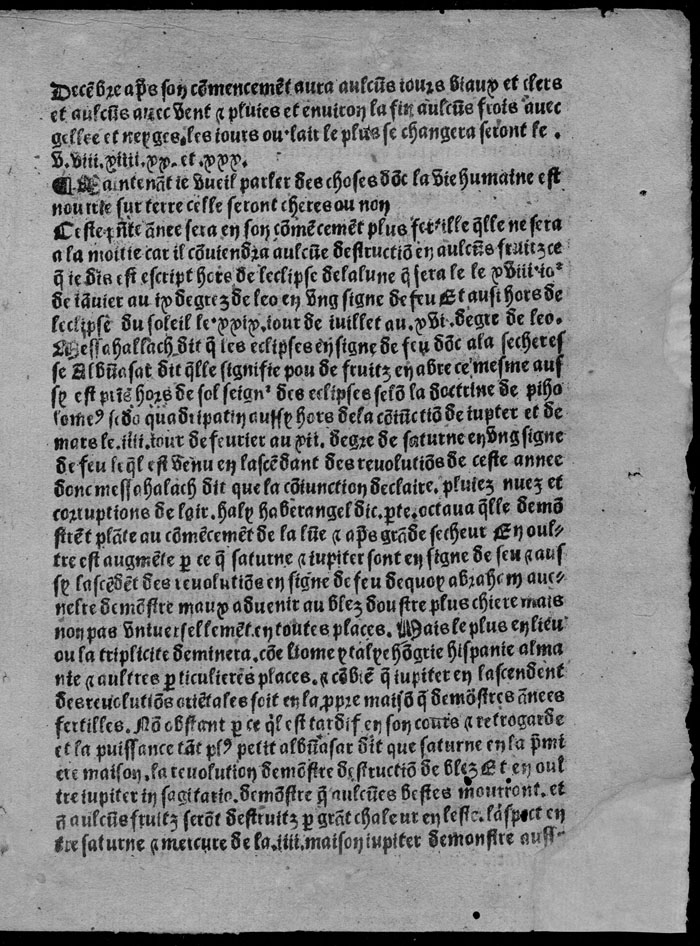 Decẽbre ap̃s son cõmencemẽt aura aulcũs iours biaux et clers
et aulcũs auec vent ⁊ pluies et enuiron la fin aulcũs frois auec
gellee et neyges. les iours ou lair le plus se changera seront le .
v. viii. xiiii. xx. et. xxx.
¶ Maintenãt ie vueil parler des choses dõc la vie humaine est
nourrie sur terre celle seront cheres ou non
Ceste p̃ñte ãnee sera en son cõmẽcemẽt plus fertille q̃lle ne sera
a la moitie car il cõuiendra aulcũe destructiõ en aulcũs fruitz ce
q̃ ie dis est escript hors de leclipse de la lune q̃ sera le le xviii. ioꝰ
de ianuier au ix degrez de leo en vng signe de feu Et ausi hors de
leclipse du soleil le. xxix. iour de iuillet au. xvi. degre de leo.
Messahallach dit q̃ les eclipses en signe de feu dõc a la secheres
se Albũasat dit q̃lle signifie pou de fruitz en abre ce mesme auf
sy est priñs hors de sol seignꝰ des eclipses selõ la doctrine de ptho
lomeꝰ sedo quadripatin aussy hors de la cõiũctiõ de iupter et de
mars le. iiii. iour de feurier au xii. degre de saturne en vng signe
de feu le q̃l est venu en lascẽdant des reuolutiõs de ceste annee
donc messahalach dit que la cõiunction declaire. pluiez nuez et
corruptions de lair. haly haberangel dic. p̱te. octaua q̃lle demõ
strẽt plãte au cõmẽcemẽt de la lũe ⁊ ap̃s grãde secheur En oul⸗
tre est augmẽte p̱ ce q̃ saturne ⁊ iupiter sont en signe de feu ⁊ auf
sy lascẽdẽt des reuolutiõs en signe de feu dequoy abraham aue⸗
nelre demõstre maux aduenir au blez doustre plus chiere mais
non pas vniuersellemẽt. en toutes places. Mais le plus en lieu
ou la triplicite deminera. cõe liome ytalye hõgrie hispanie alma
nie ⁊ aultres p̱ticulieres places. ⁊ cõbiẽ q̃ iupiter en lascendent
des reuolutiõs oriẽtales soit en la p̱pre maisõ q̃ demõstres ãnees
fertilles. Nõ obstant p̱ ce q̃l est tardif en son cours ⁊ retrogarde
et la puissance tãt plꝰ petit albũasar dit que saturne en la p̃mi
ere maison. la reuolution demõstre destructiõ de blez Et en oul
tre iupiter in sagitario. demõstre q̃ aulcũes bestes mourront. et
q̃ aulcũs fruitz serõt destruitz p̱ grãt chaleur en leste. laspect en
tre saturne ⁊ mercure de la. iiii. maison iupiter demonstre auss⸗